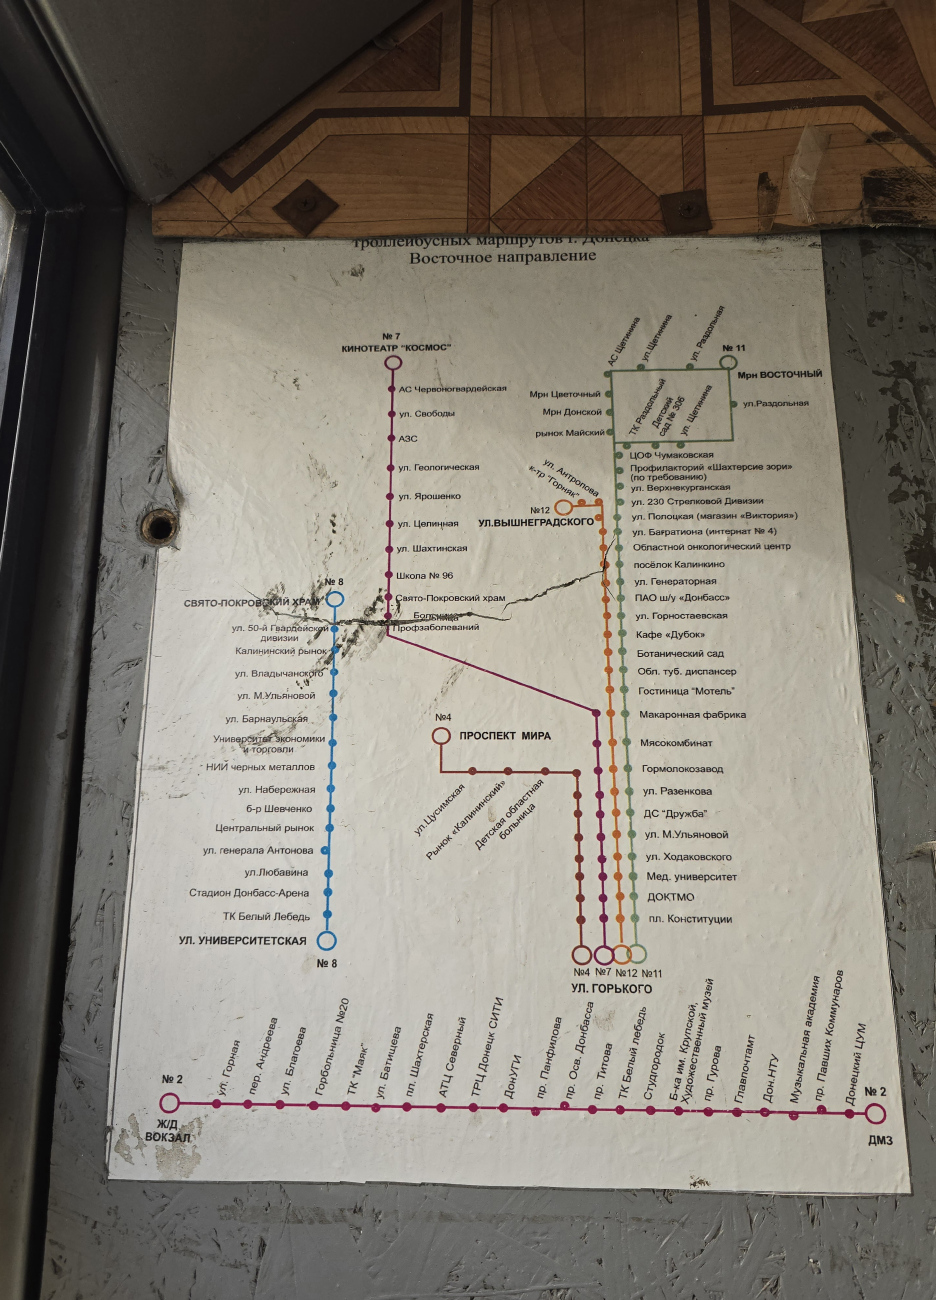 троллейбусных маршрутов г. Донецка
Восточное направление
№ 7
КИНОТЕАТР "КОСМОС"
АС Червоногвардейская
ул. Свободы
АЗС
ул. Геологическая
ул. Ярошенко
ул. Целинная
ул. Шахтинская
Школа № 96
Свято-Покровский храм
Больница
Профзаболеваний
АС Щетинина
ул.Щетинина
ул. Раздольная
№ 11
Мрн ВОСТОЧНЫЙ
ул.Раздольная
Мрн Цветочный
Мрн Донской
рынок Майский
ТК Раздольный
Детский
сад № 306
ул. Щетинина
ЦОФ Чумаковская
Профилакторий «Шахтерсие зори»
(по требованию)
ул. Верхнекурганская
ул. 230 Стрелковой Дивизии
ул. Полоцкая (магазин «Виктория»)
ул. Багратиона (интернат № 4)
Областной онкологический центр
посёлок Калинкино
ул. Генераторная
ПАО ш/у «Донбасс»
ул. Горностаевская
Кафе «Дубок»
Ботанический сад
Обл. туб. диспансер
Гостиница "Мотель"
Макаронная фабрика
Мясокомбинат
Гормолокозавод
ул. Разенкова
ДС "Дружба"
ул. М.Ульяновой
ул. Ходаковского
Мед. университет
ДОКТМО
пл. Конституции
ул. Антропова
к-тр "Горняк"
№12
УЛ.ВЫШНЕГРАДСКОГО
№ 8
СВЯТО-ПОКРОВСКИЙ ХРАМ
ул. 50-й Гвардейской
дивизии
Калининский рынок
ул. Владычанского
ул. М.Ульяновой
ул. Барнаульская
Университет экономики
и торговли
НИИ черных металлов
ул. Набережная
б-р Шевченко
Центральный рынок
ул. генерала Антонова
ул.Любавина
Стадион Донбасс-Арена
ТК Белый Лебедь
УЛ. УНИВЕРСИТЕТСКАЯ
№ 8
№4
ПРОСПЕКТ МИРА
ул.Цусимская
Рынок «Калининский»
Детская областная
больница
№4 №7 №12 №11
УЛ. ГОРЬКОГО
№ 2
Ж/Д
ВОКЗАЛ
ул. Горная
пер. Андреева
ул. Благоева
Горбольница №20
ТК "Маяк"
ул. Батищева
пл. Шахтерская
АТЦ Северный
ТРЦ Донецк СИТИ
ДонУГИ
пр. Панфилова
пр. Осв. Донбасса
пр. Титова
ТК Белый лебедь
Студгородок
Б-ка им. Крупской,
Художественный музей
пр. Гурова
Главпочтамт
Дон.НТУ
Музыкальная академия
пр. Павших Коммунаров
Донецкий ЦУМ
№ 2
ДМЗ